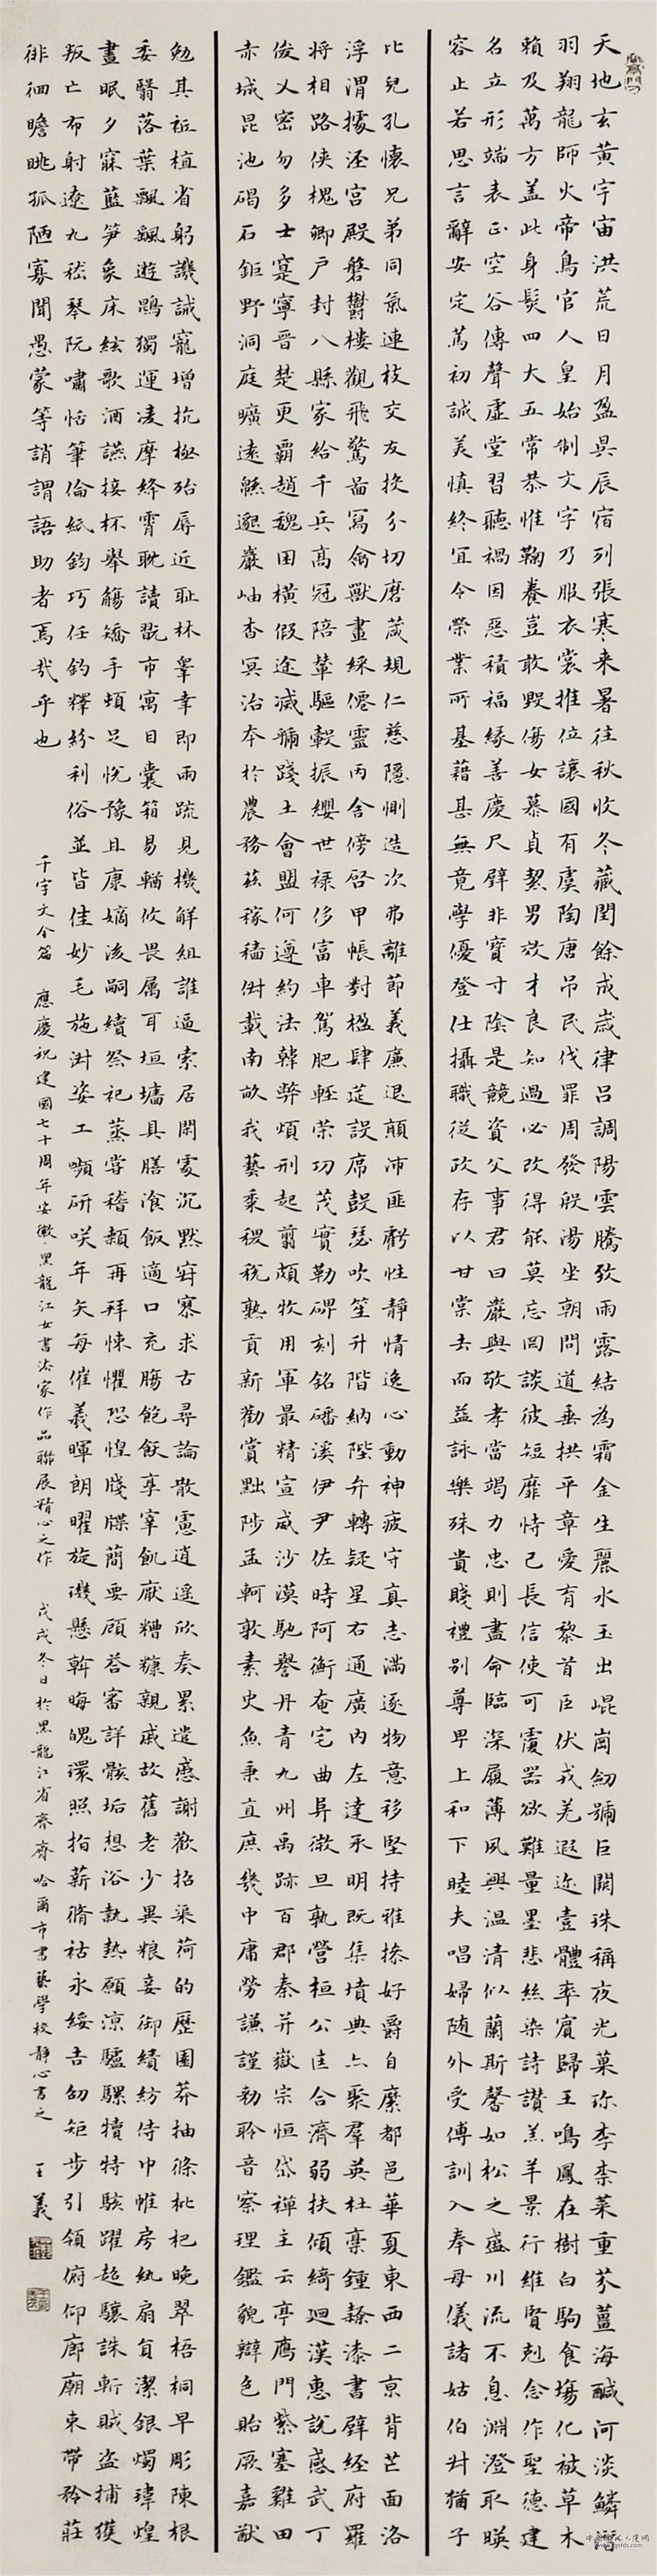 天地玄黃宇宙洪荒日月盈昃辰宿列張寒来暑往秋收冬藏閏餘成歲律呂調陽雲騰致雨露結為霜金生麗水玉出崐崗劒號巨闕珠稱夜光菓珍李柰菜重芥薑海醎河淡鱗潛
羽翔龍師火帝鳥官人皇始制文字乃服衣裳推位讓國有虞陶唐吊民伐罪周發殷湯坐朝問道垂拱平章愛育黎首臣伏戎羌遐迩壹體率賓歸王鳴鳳在樹白駒食場化被草木
賴及萬方盖此身髮四大五常恭惟鞠養豈敢毀傷女慕貞絜男效才良知過必改得能莫忘罔談彼短靡恃己長信使可覆器欲難量墨悲絲染詩讚羔羊景行維賢剋念作聖德建
名立形端表正空谷傳聲虛堂習聽禍因惡積福緣善慶尺璧非寶寸陰是競資父事君曰嚴與敬孝當竭力忠則盡命臨深履薄夙興温清似蘭斯馨如松之盛川流不息淵澄取暎
容止若思言辭安定篤初誠美慎終宜令榮業所基藉甚無竟學優登仕攝職從政存以甘棠去而益詠樂殊貴賤禮別尊卑上和下睦夫唱婦随外受傅訓入奉母儀諸姑伯叔猶子
比兒孔懷兄弟同氣連枝交友投分切磨葴規仁慈隱惻造次弗離節義廉退顛沛匪虧性靜情逸心動神疲守真志滿逐物意移堅持雅操好爵自縻都邑華夏東西二京背芒面洛
浮渭據涇宮殿磐鬱樓觀飛驚啚寫禽獸畫綵僊靈丙舍傍啓甲帳對楹肆筵設席鼓瑟吹笙升階納陛弁轉疑星右通廣內左達承明既集墳典亦聚羣英杜稾鍾隸漆書壁經府羅
將相路俠槐卿户封八縣家給千兵高冠陪輦驅轂振纓世禄侈富車駕肥輕策功茂實勒碑刻銘磻溪伊尹佐時阿衡奄宅曲阜微旦孰營桓公匡合濟弱扶傾綺迴漢惠說感武丁
俊乂密勿多士寔寧晉楚更霸趙魏困橫假途滅虢踐土會盟何遵約法韓弊煩刑起翦頗牧用軍最精宣威沙漠馳譽丹青九州禹跡百郡秦并嶽宗恒岱禪主云亭鴈門紫塞雞田
赤城昆池碣石鉅野洞庭曠遠緜邈巖岫杳冥治本於農務茲稼穡俶載南畝我藝黍稷稅熟貢新勸賞黜陟孟軻敦素史魚秉直庶幾中庸勞謙謹勑聆音察理鑑貌辯色貽厥嘉猷
勉其祗植省躬譏誡寵增抗極殆辱近恥林皋幸即兩疏見機解組誰逼索居閑處沉默寂寥求古尋論散慮逍遥欣奏累遣慼謝歡招渠荷的歷園莽抽條枇杷晚翠梧桐早彫陳根
委翳落葉飄颻遊鵾獨運凌摩絳霄耽讀翫市寓目囊箱易輶攸畏属耳垣墻具膳湌飯適口充腸飽飫享宰飢厭糟糠親戚故舊老少異粮妾御績紡侍巾帷房紈扇員潔銀燭煒煌
晝眠夕寐藍笋象床絃歌酒讌接杯舉觴矯手頓足悅豫且康嫡後嗣續祭祀蒸甞稽顙再拜悚懼恐惶牋牒簡要顧荅審詳骸垢想浴執熱願凉驢騾犢特駭躍超驤誅斬賊盗捕獲
叛亡布射遼丸嵇琴阮嘯恬筆倫紙鈞巧任釣釋紛利俗並皆佳妙毛施淑姿工嚬研咲年矢每催羲暉朗曜旋璣懸斡晦魄環照指薪脩祜永綏吉劭矩步引領俯仰廊廟束帶矜莊
徘徊瞻眺孤陋寡聞愚蒙等誚謂語助者焉哉乎也
千字文全篇 應慶祝建國七十周年安徽黑龍江女書法家作品聯展精心之作 戊戌冬日於黑龍江省齊齊哈爾市書藝學校靜心書之 王義